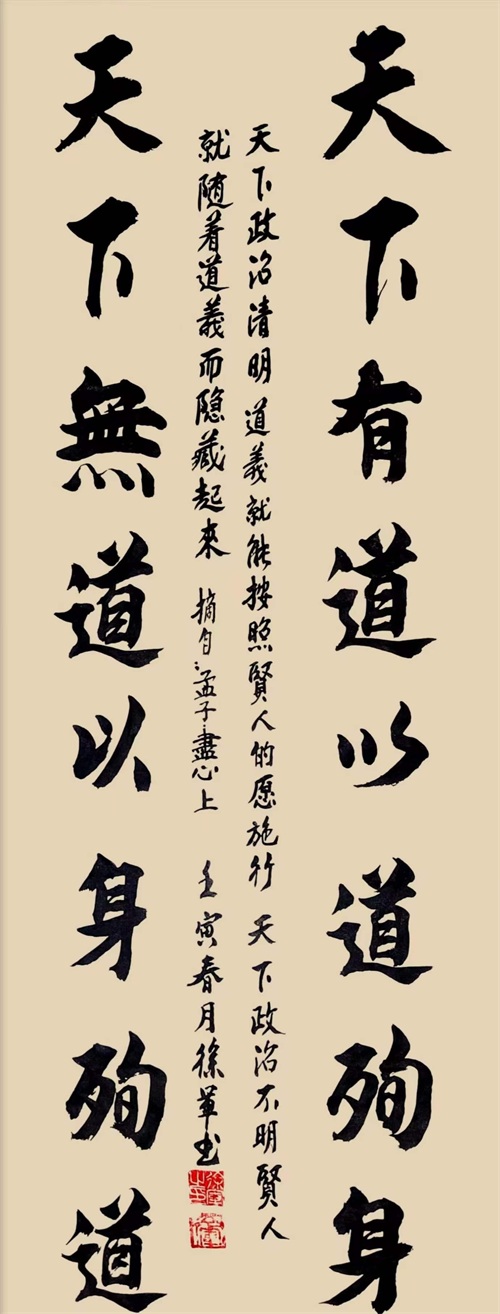 天下有道以道殉身
天下政治清明道義就能按照賢人的愿施行 天下政治不明賢人
就随着道義而隐藏起來 摘自:孟子·盡心上 壬寅春月徐軍书
天下無道以身殉道